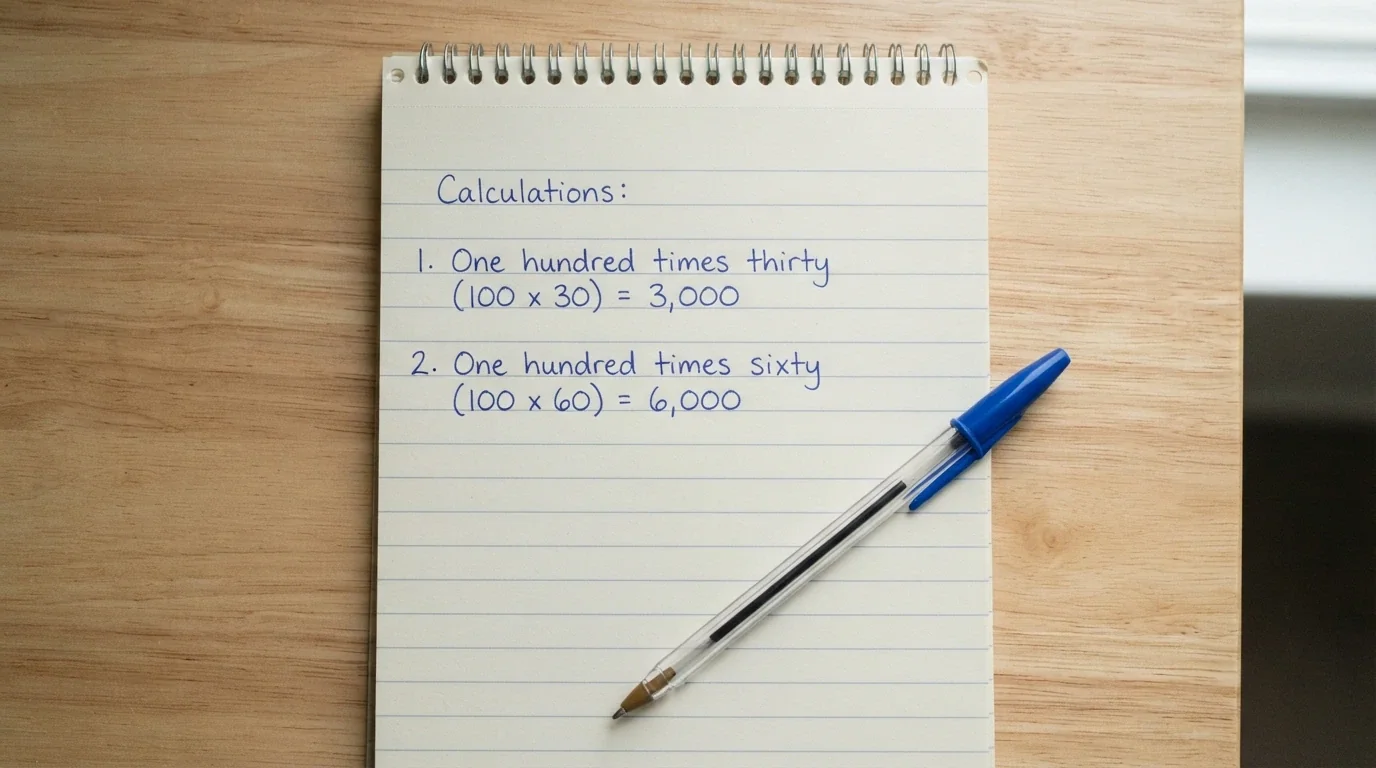 Calculations:
1. One hundred times thirty
(100 x 30) = 3,000
2. One hundred times sixty
(100 x 60) = 6,000